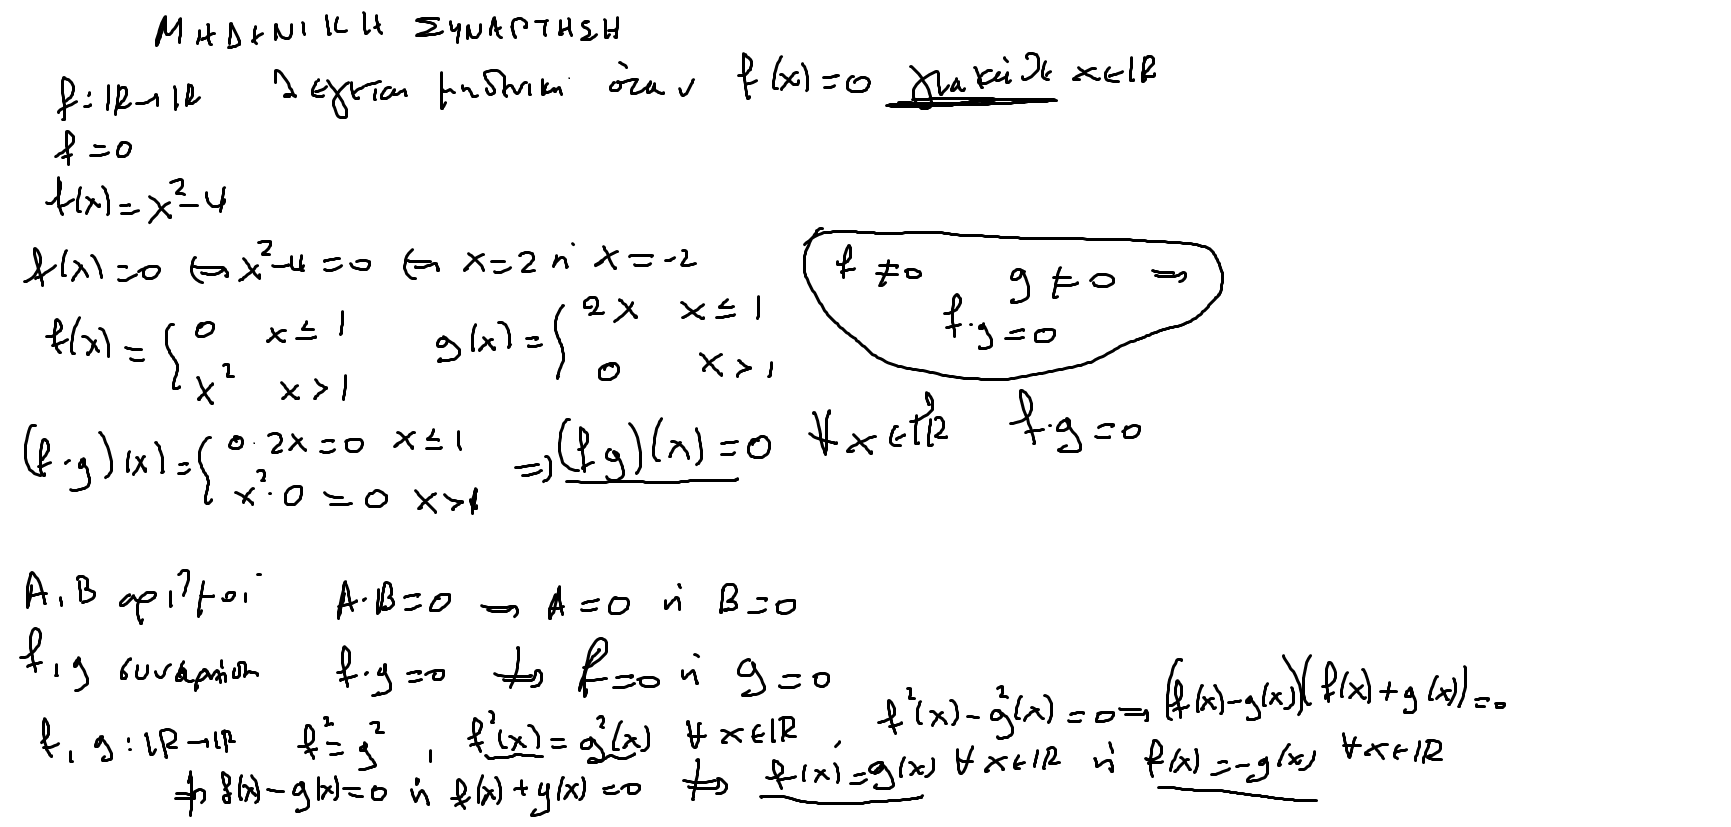 ΜΗΔΕΝΙΚΗ ΣΥΝΑΡΤΗΣΗ
f: ℝ→ℝ λέγεται μηδενική όταν f(x)=0 για κάθε x∈ℝ
f=0
f(x)=x²-4
f(x)=0 ⇔ x²-4=0 ⇔ x=2 ή x=-2
f≠0 g≠0 ⇒
f·g=0
f(x)={ 0 x≤1
x² x>1
g(x)={ 2x x≤1
0 x>1
(f·g)(x)={ 0·2x=0 x≤1
x²·0=0 x>1
⇒ (fg)(x)=0 ∀x∈ℝ f·g=0
A, B αριθμοί A·B=0 ⇒ A=0 ή B=0
f, g συναρτήση f·g=0 ⇏ f=0 ή g=0
f, g: ℝ→ℝ f²=g², f²(x)=g²(x) ∀x∈ℝ, f²(x)-g²(x)=0 ⇒ (f(x)-g(x))(f(x)+g(x))=0
⇒ f(x)-g(x)=0 ή f(x)+g(x)=0 ⇏ f(x)=g(x) ∀x∈ℝ ή f(x)=-g(x) ∀x∈ℝ